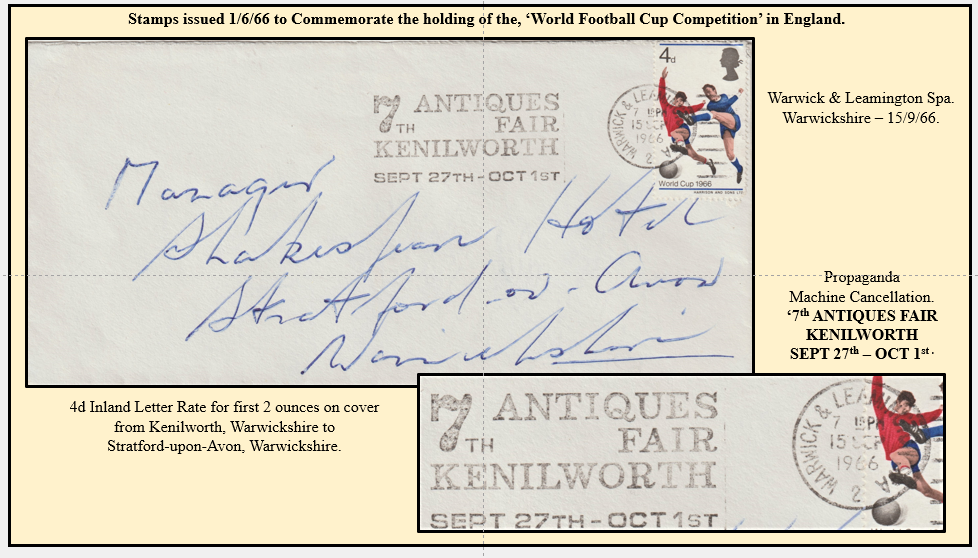 Stamps issued 1/6/66 to Commemorate the holding of the, ‘World Football Cup Competition’ in England.
7TH ANTIQUES
FAIR
KENILWORTH
SEPT 27TH-OCT 1ST
WARWICK & LEAM
7 15PM
15 SEP
1966
2 A
4d
World Cup 1966
HARRISON AND SONS LTD
Warwick & Leamington Spa.
Warwickshire – 15/9/66.
Manager
Shakespeare Hotel
Stratford-on-Avon
Warwickshire
Propaganda
Machine Cancellation.
‘7th ANTIQUES FAIR
KENILWORTH
SEPT 27th – OCT 1st.
4d Inland Letter Rate for first 2 ounces on cover
from Kenilworth, Warwickshire to
Stratford-upon-Avon, Warwickshire.
7TH ANTIQUES
FAIR
KENILWORTH
SEPT 27TH-OCT 1ST
WARWICK & LEAM
7 15PM
15 SEP
1966
2 A